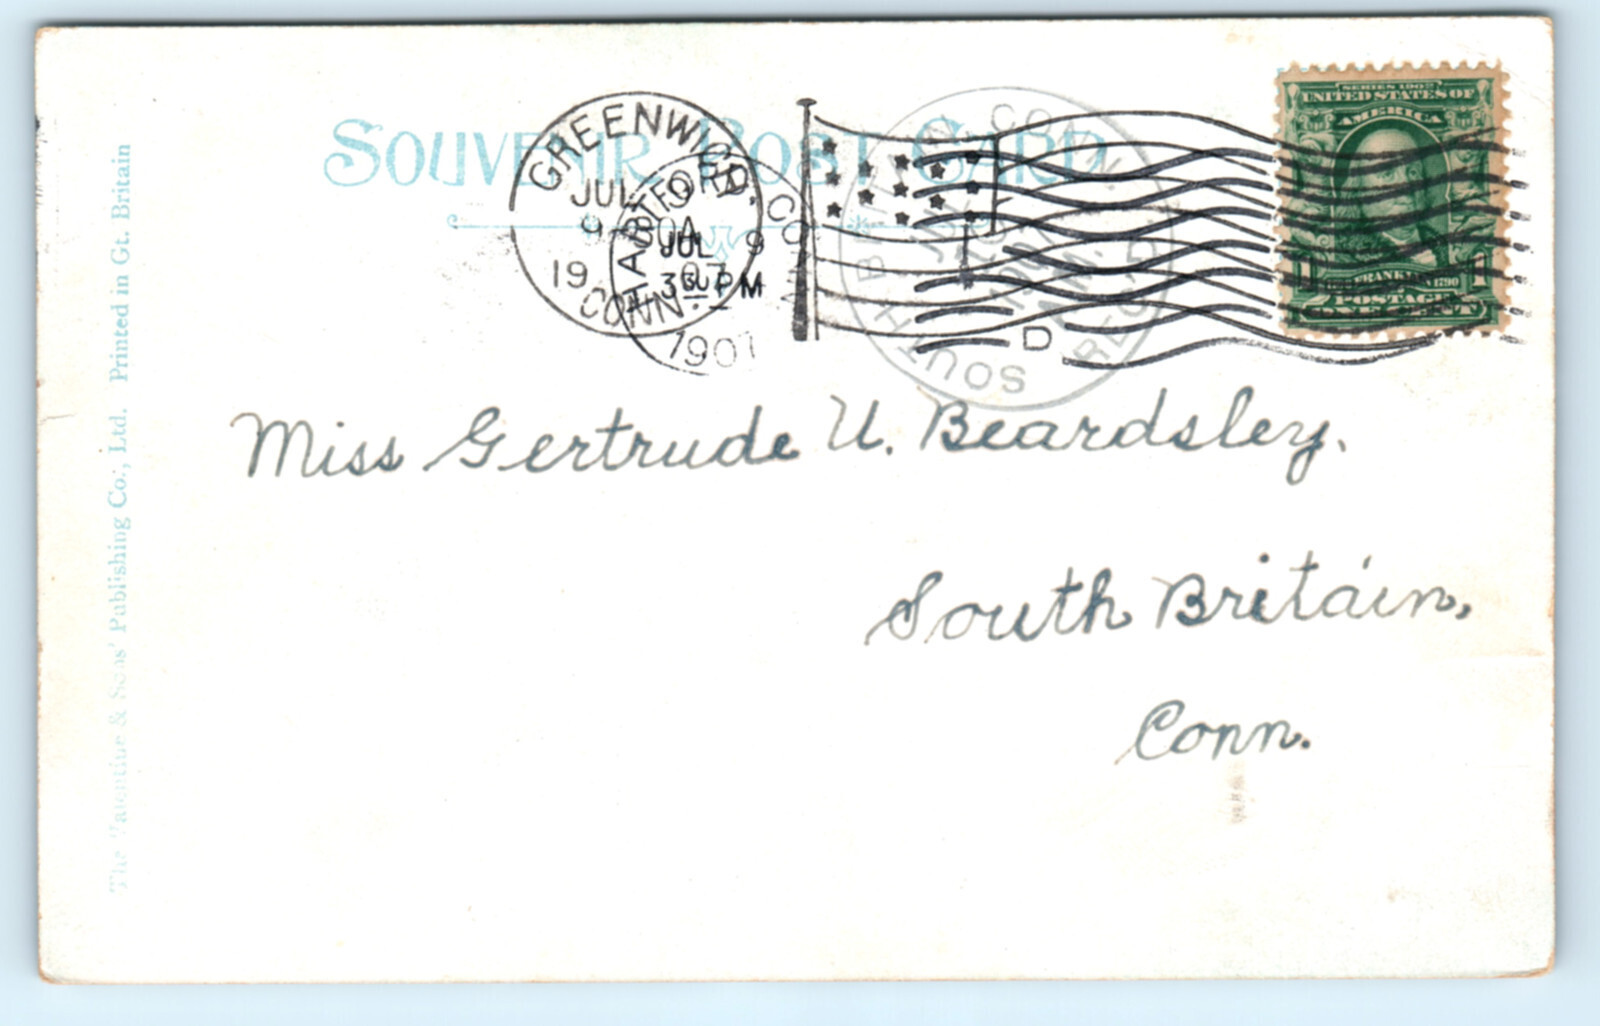 SOUVENIR POST CARD
GREENWICH, CONN.
JUL 9
9-30A
1907
HARTFORD, CONN.
JUL 9
3 30 PM
1907
D
SOUTH BRITAIN, CONN.
JUL
10
1907
AM.
REC'D
SERIES 1902
UNITED STATES OF
AMERICA
1 FRANKLIN 1790 1
POSTAGE
ONE CENT
Miss Gertrude U. Beardsley.
South Britain,
Conn.
The Valentine & Sons' Publishing Co., Ltd. Printed in Gt. Britain